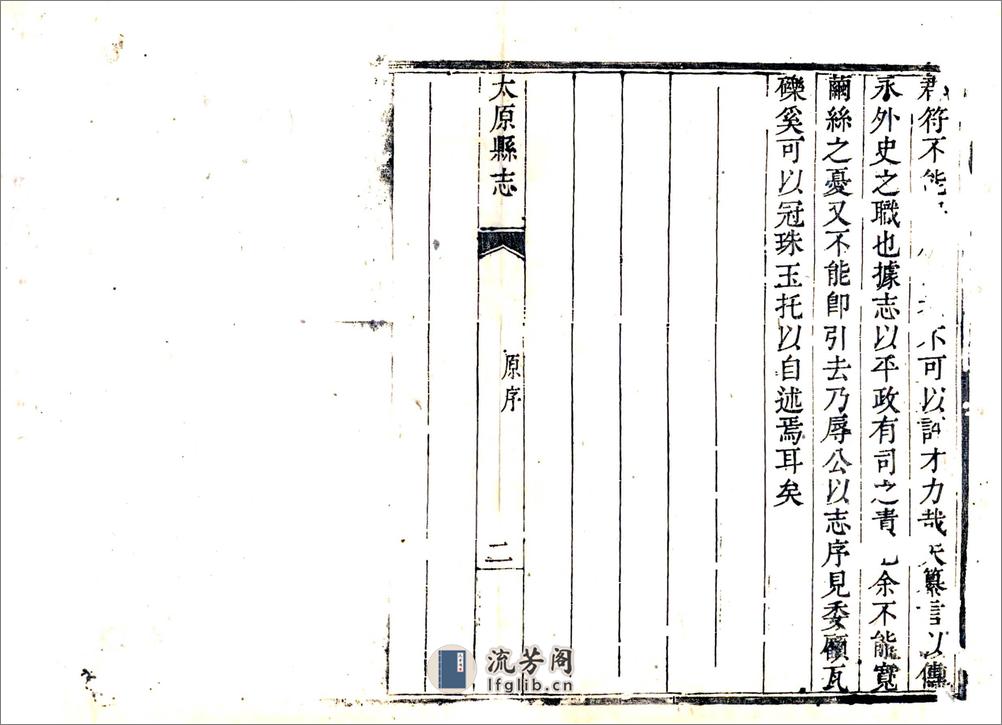 符不能不可以才力哉夫纂言以傳
永外史之職也據志以平政有司之責也余不能寬
繭絲之憂又不能即引去乃辱公以志序見委顧瓦
礫奚可以冠珠玉托以自述焉耳矣
太原縣志
原序
二
流芳阁
lfglib.cn